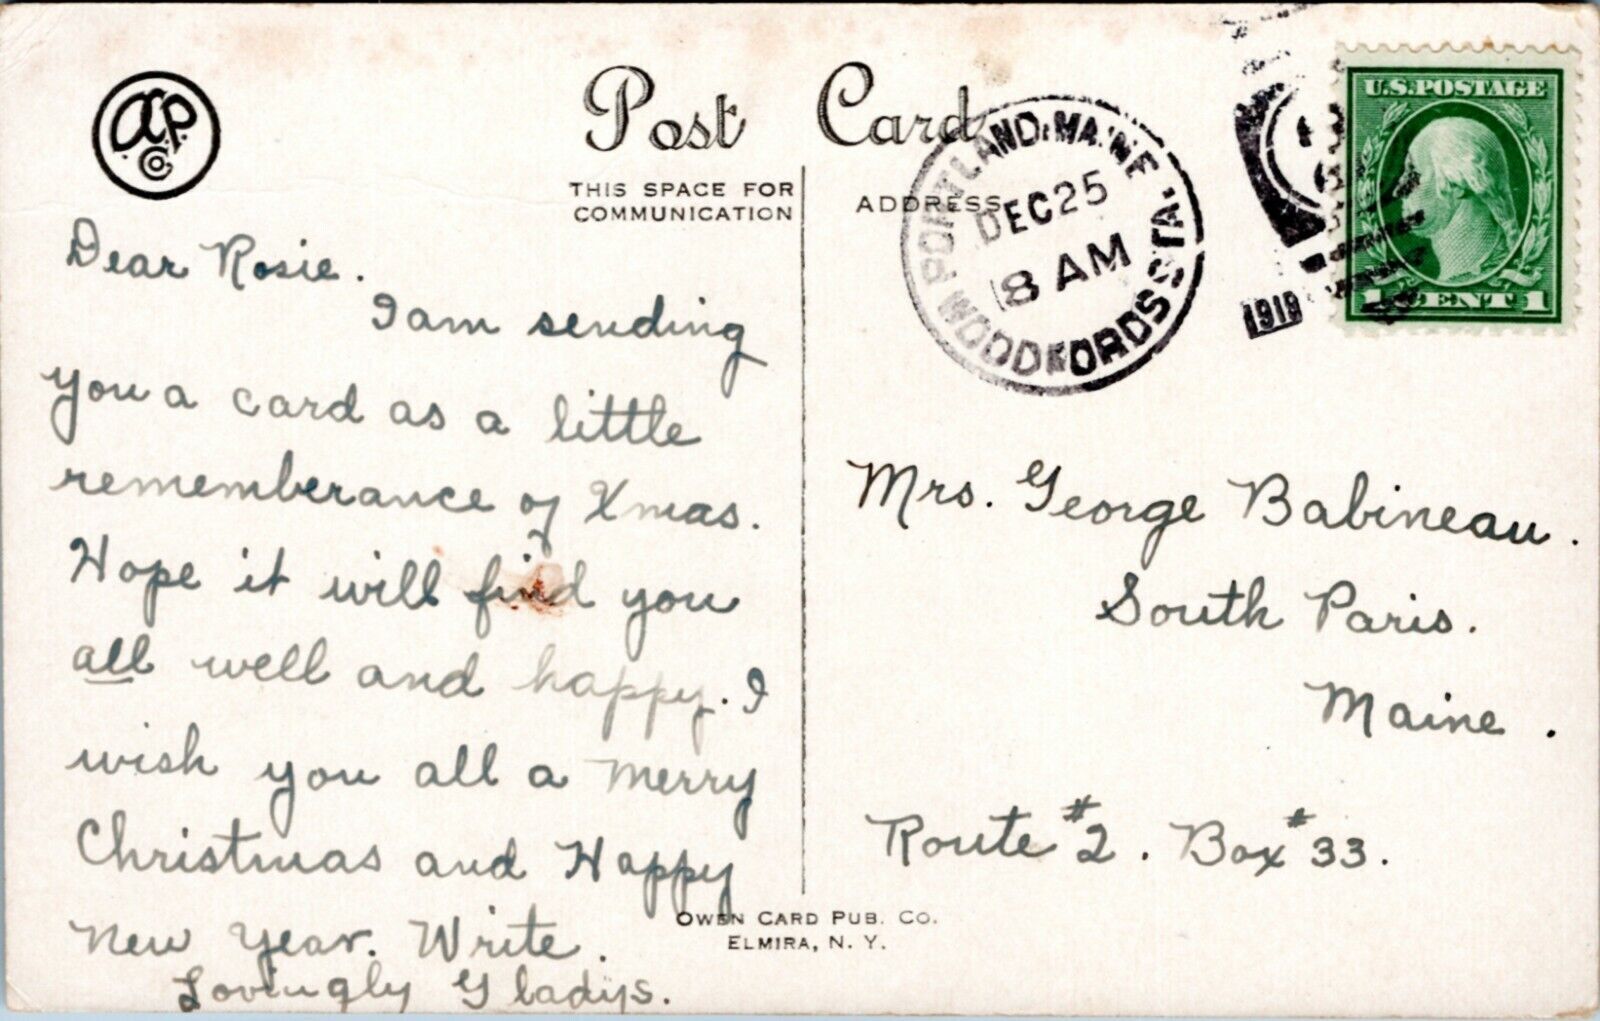 Post Card
THIS SPACE FOR
COMMUNICATION
ADDRESS
PORTLAND, MAINE
DEC 25
8 AM
WOODFORDS STA.
1919
U.S. POSTAGE
1 CENT 1
Dear Rosie.
I am sending
you a card as a little
remembrance of Xmas.
Hope it will find you
all well and happy. I
wish you all a Merry
Christmas and Happy
New Year. Write.
Lovingly Gladys.
Mrs. George Babineau.
South Paris.
Maine.
Route #2. Box #33.
OWEN CARD PUB. CO.
ELMIRA, N. Y.